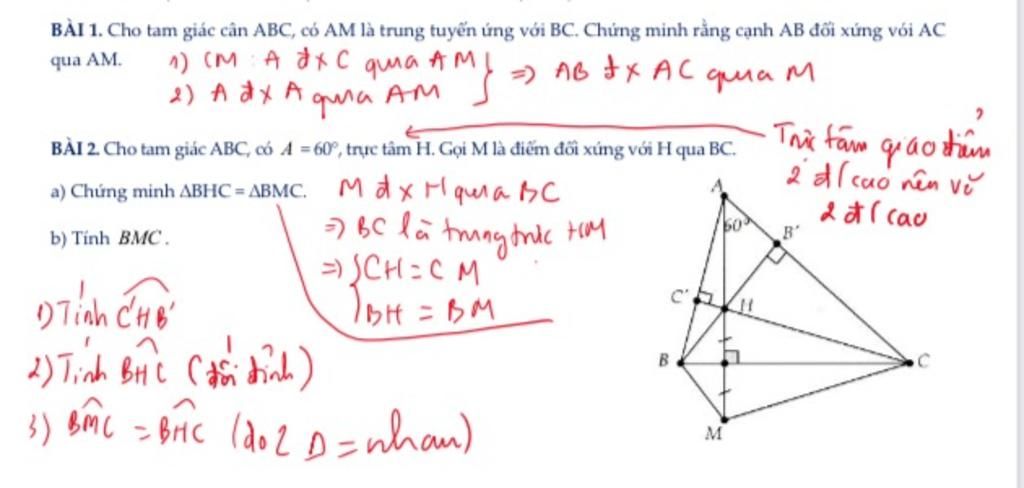 BÀI 1. Cho tam giác cân ABC, có AM là trung tuyến ứng với BC. Chứng minh rằng cạnh AB đối xứng với AC
qua AM.
1) CM : A đx C qua AM
2) A đx A qua AM
} => AB đx AC qua M
BÀI 2. Cho tam giác ABC, có A = 60°, trực tâm H. Gọi M là điểm đối xứng với H qua BC.
Trực tâm giao điểm
2 đ/cao nên vẽ
2 đ/cao
a) Chứng minh ΔBHC = ΔBMC.
M đx H qua BC
=> BC là trung trực HM
=> { CH = CM
BH = BM
b) Tính BMC.
1) Tính C'HB'
2) Tính BHC (đối đỉnh)
3) BMC = BHC (do 2 Δ = nhau)
A
60°
B'
C'
H
B
C
M